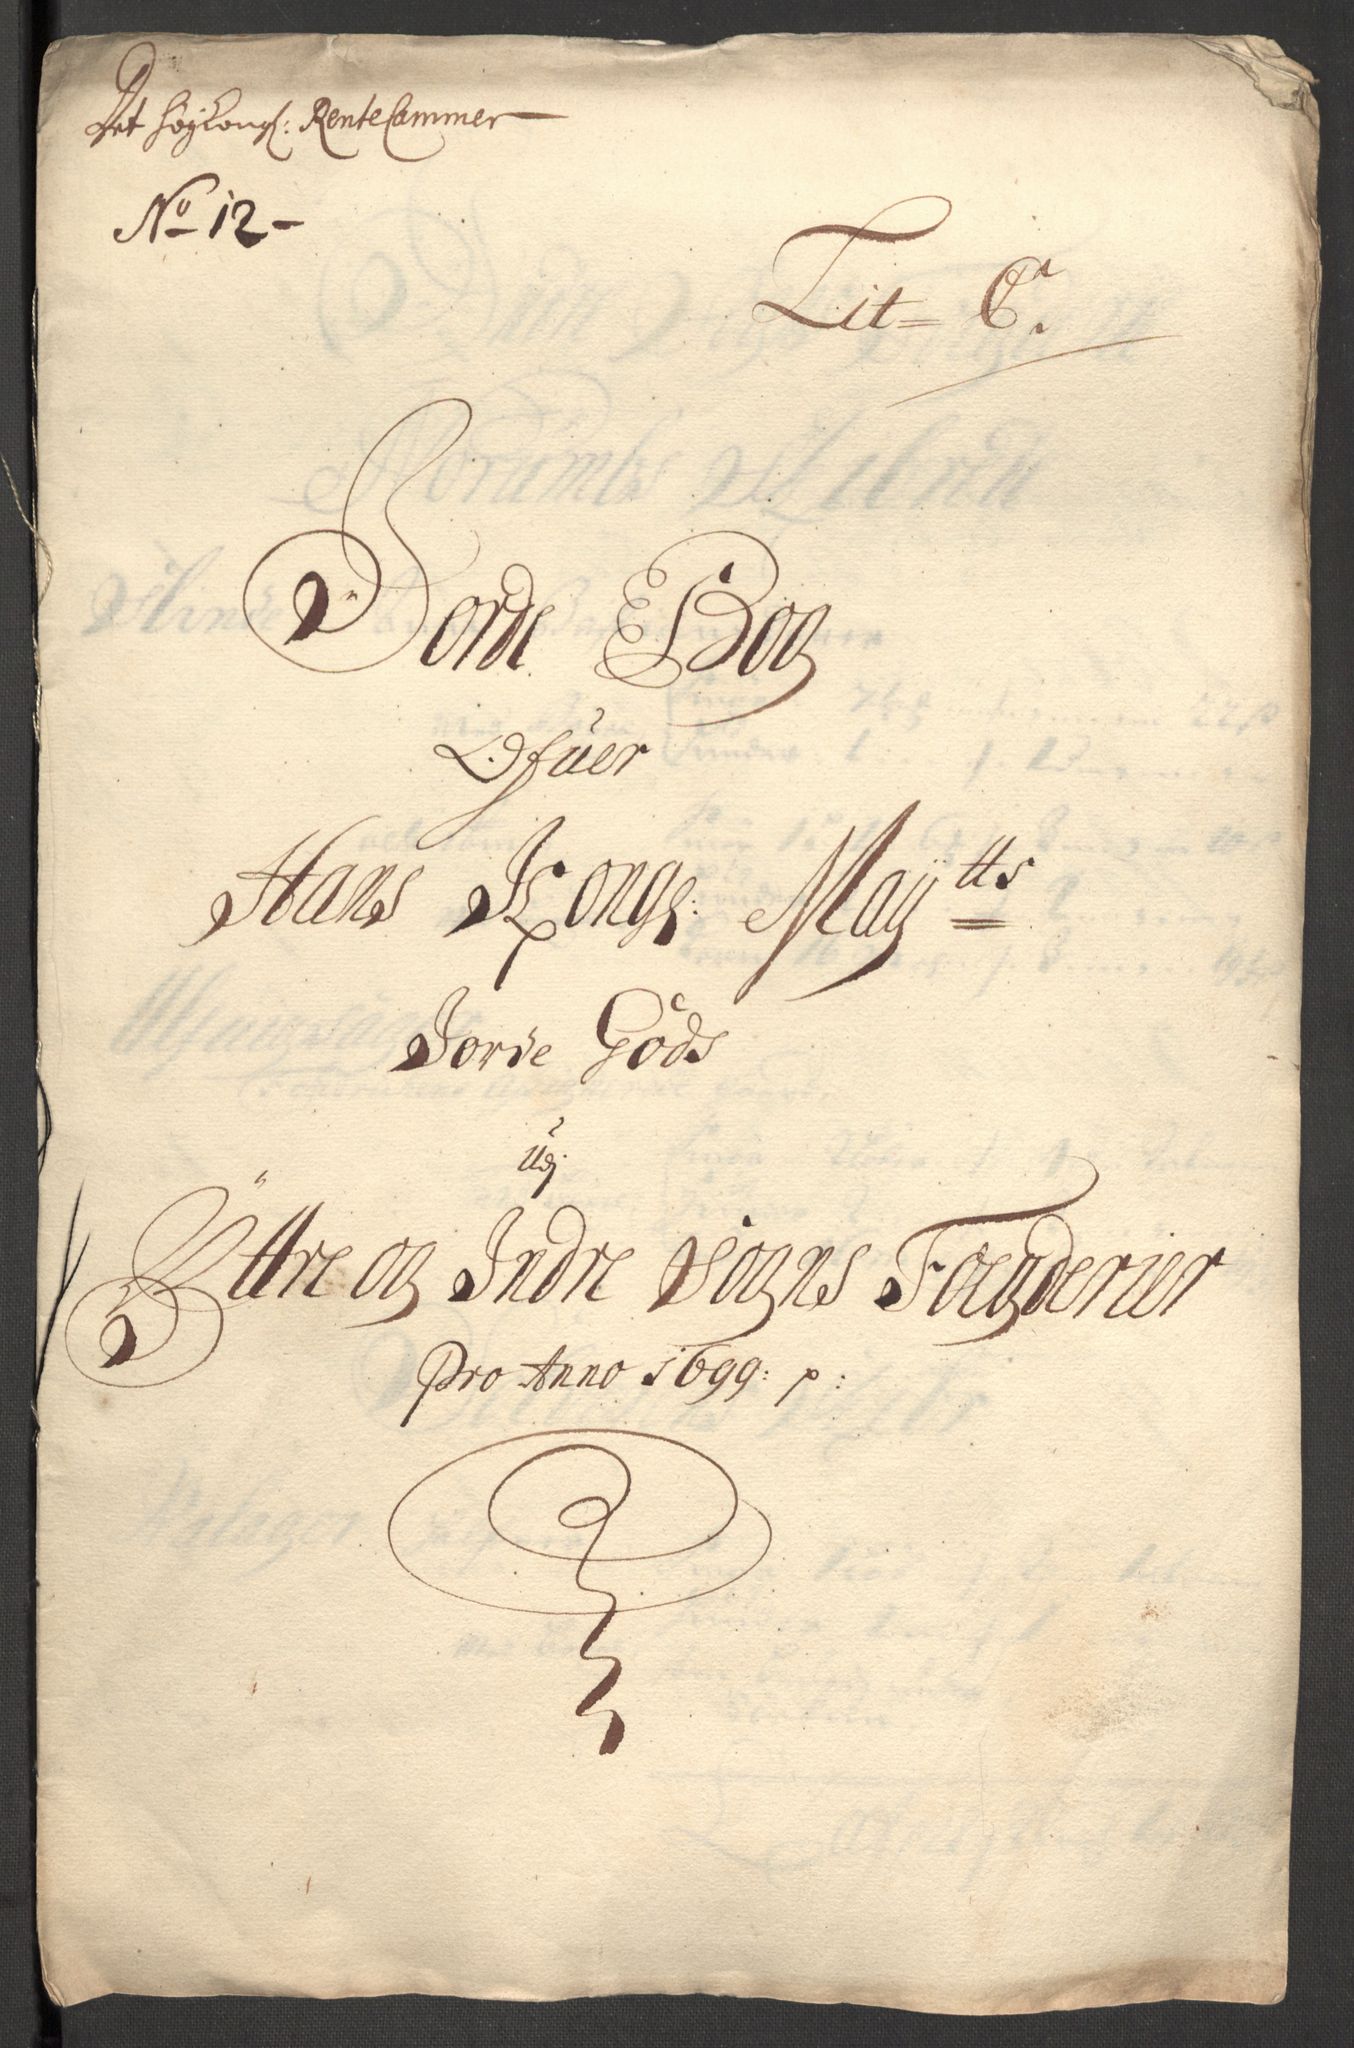 Det høykongl: RenteCammer
No 12-
Lit= C.
Jorde Bog
Ofuer
Hans Kongl: Maÿtts
Jorde Gods
Udj
Ÿttre og Indre Sogns Fogderier
Pro Anno 1699: p: